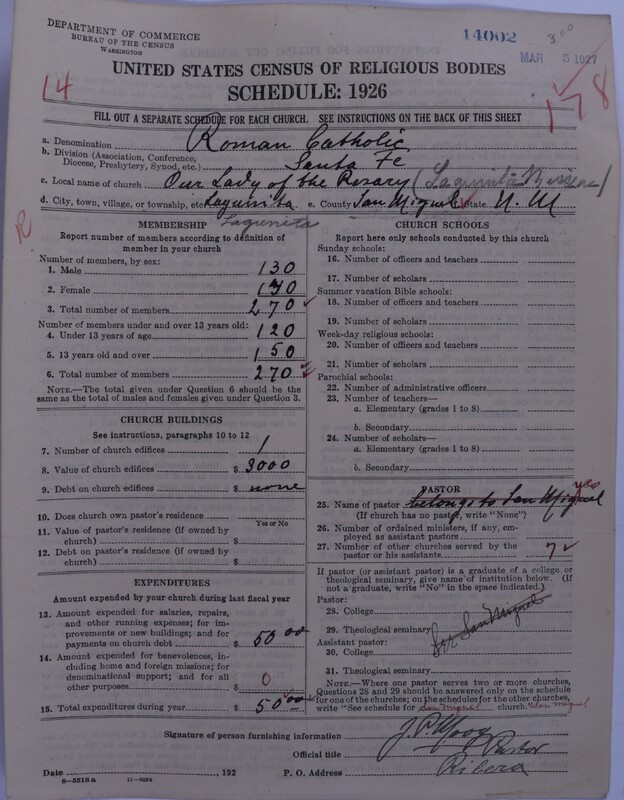 DEPARTMENT OF COMMERCE
BUREAU OF THE CENSUS
WASHINGTON
14002
MAR 5 1927
UNITED STATES CENSUS OF RELIGIOUS BODIES
SCHEDULE: 1926
14
178
FILL OUT A SEPARATE SCHEDULE FOR EACH CHURCH. SEE INSTRUCTIONS ON THE BACK OF THIS SHEET
a. Denomination Roman Catholic
b. Division (Association, Conference, Diocese, Presbytery, Synod, etc.) Santa Fe
c. Local name of church Our Lady of the Rosary
d. City, town, village, or township, etc. Lagunita e. County San Miguel State N. M
Lagunita
MEMBERSHIP
Report number of members according to definition of
member in your church
Number of members, by sex:
1. Male 130
2. Female 140
3. Total number of members 270
Number of members under and over 13 years old:
4. Under 13 years of age 120
5. 13 years old and over 150
6. Total number of members 270
NOTE.—The total given under Question 6 should be
same as the total of males and females given under Question 3.
CHURCH BUILDINGS
See instructions, paragraphs 10 to 12
7. Number of church edifices 1
8. Value of church edifices $ 3000
9. Debt on church edifices $ none
10. Does church own pastor's residence
Yes or No
11. Value of pastor's residence (if owned by
church) $
12. Debt on pastor's residence (if owned by
church) $
EXPENDITURES
Amount expended by your church during last fiscal year
13. Amount expended for salaries, repairs,
and other running expenses; for im-
provements or new buildings; and for
payments on church debt $ 50 00
14. Amount expended for benevolences, in-
cluding home and foreign missions; for
denominational support; and for all
other purposes $ 0
15. Total expenditures during year $ 50 00
CHURCH SCHOOLS
Report here only schools conducted by this church
Sunday schools:
16. Number of officers and teachers
17. Number of scholars
Summer vacation Bible schools:
18. Number of officers and teachers
19. Number of scholars
Week-day religious schools:
20. Number of officers and teachers
21. Number of scholars
Parochial schools:
22. Number of administrative officers
23. Number of teachers—
a. Elementary (grades 1 to 8)
b. Secondary
24. Number of scholars—
a. Elementary (grades 1 to 8)
b. Secondary
PASTOR
yes
25. Name of pastor belongs to San Miguel
(If church has no pastor, write "None")
26. Number of ordained ministers, if any, em-
ployed as assistant pastors
27. Number of other churches served by the
pastor or his assistants 7
If pastor (or assistant pastor) is a graduate of a college or
theological seminary, give name of institution below. (If
not a graduate, write "No" in the space indicated.)
Pastor:
28. College
29. Theological seminary
San Miguel
Assistant pastor:
30. College
31. Theological seminary
NOTE.—Where one pastor serves two or more churches,
Questions 28 and 29 should be answered only on the schedule
for one of the churches; on the schedules for the other churches,
write "See schedule for San Miguel church. San Miguel
Signature of person furnishing information
Official title Pastor
Date , 192 P. O. Address Ribera
8—5518 a 11—9224